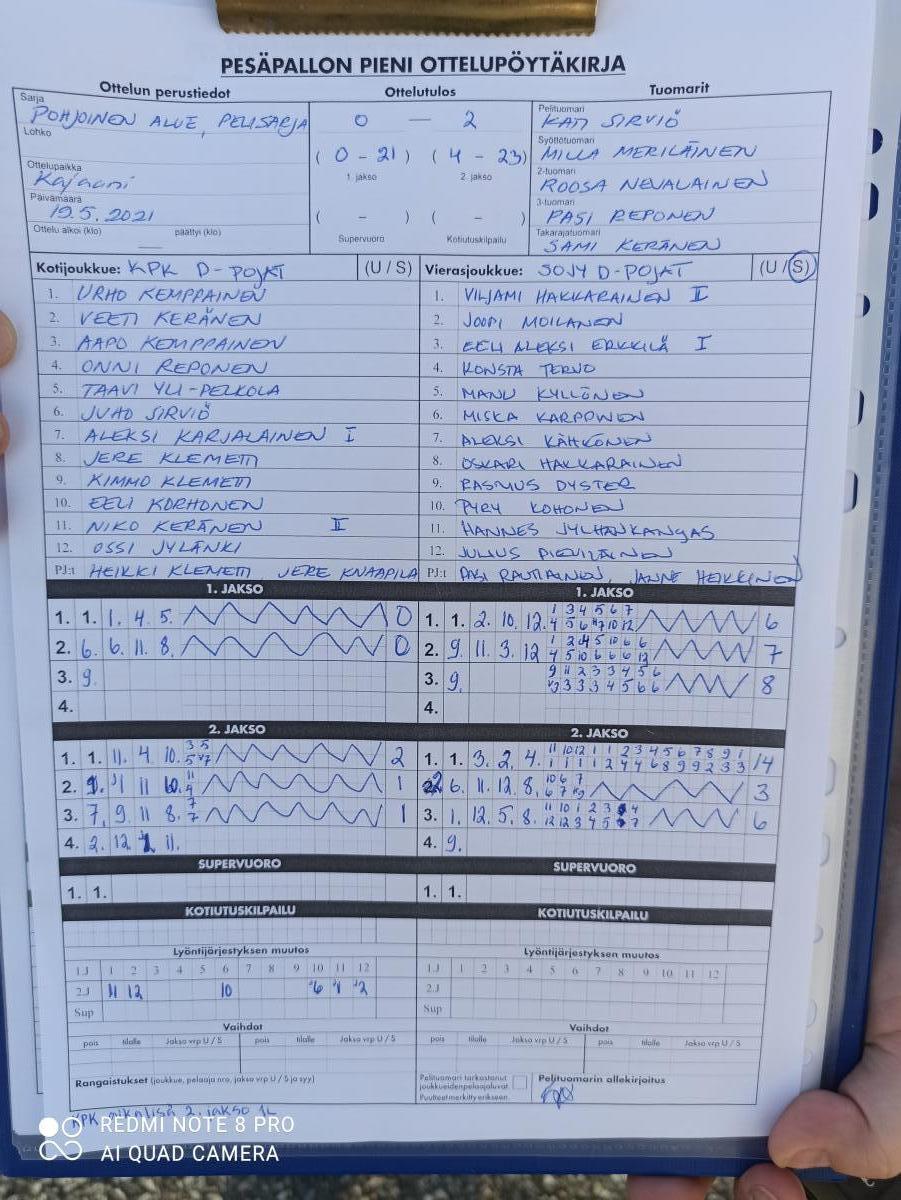 PESÄPALLON PIENI OTTELUPÖYTÄKIRJA
Ottelun perustiedot
Ottelutulos
Tuomarit
Sarja
POHJOINEN ALUE, PELISARJA
Lohko
Ottelupaikka
Kajaani
Päivämäärä
19.5.2021
Ottelu alkoi (klo) päättyi (klo)
0 — 2
(0 - 21) (4 - 23)
1. jakso 2. jakso
( - ) ( - )
Supervuoro Kotiutuskilpailu
Pelituomari
KATI SIRVIÖ
Syöttötuomari
MILLA MERILÄINEN
2-tuomari
ROOSA NEVALAINEN
3-tuomari
PASI REPONEN
Takarajatuomari
SAMI KERÄNEN
Kotijoukkue: KPK D-POJAT (U / S)
1. URHO KEMPPAINEN
2. VEETI KERÄNEN
3. AAPO KEMPPAINEN
4. ONNI REPONEN
5. TAAVI YLI-PELKOLA
6. JUHO SIRVIÖ
7. ALEKSI KARJALAINEN I
8. JERE KLEMETTI
9. KIMMO KLEMETTI
10. EELI KORHONEN
11. NIKO KERÄNEN II
12. OSSI JYLÄNKI
PJ:t HEIKKI KLEMETTI JERE KNAAPILA
Vierasjoukkue: SOJY D-POJAT (U / S)
1. VILJAMI HAKKARAINEN II
2. JOOPI MOILANEN
3. EELI ALEKSI ERKKILÄ I
4. KONSTA TERVO
5. MANU KYLLÖNEN
6. MISKA KARPPINEN
7. ALEKSI KÄHKÖNEN
8. OSKARI HAKKARAINEN
9. RASMUS DYSTER
10. PYRY KOHONEN
11. HANNES JYLHÄNKANGAS
12. JULIUS PIEVILÄINEN
PJ:t PASI RAUTIAINEN, JANNE HEIKKINEN
1. JAKSO
1. 1. 1. 4. 5. 0
2. 6. 6. 11. 8. 0
3. 9.
4.
1. JAKSO
1. 1. 2. 10. 12. 6
1 3 4 5 6 7
2. 9. 11. 3. 12 7
1 2 4 5 10 6 6
4 5 10 6 6 6 12
3. 9. 8
9 11 2 3 3 4 5 6
3 3 3 4 5 6 6
4.
2. JAKSO
1. 1. 11. 4. 10. 2
3 5
2. 11 1
3. 7. 9. 11 8. 7 1
7
4. 2. 12 11.
2. JAKSO
1. 1. 3. 2. 4. 14
11 10 12 1 1 2 3 4 5 6 7 8 9 1
1 1 1 1 2 4 4 6 8 9 9 2 3 3
6. 11. 12. 8. 3
10 6 7
3. 1. 12. 5. 8. 6
4. 9.
SUPERVUORO
1. 1.
SUPERVUORO
1. 1.
KOTIUTUSKILPAILU
KOTIUTUSKILPAILU
Lyöntijärjestyksen muutos
1.J 1 2 3 4 5 6 7 8 9 10 11 12
2.J 11 12 10
Sup
Lyöntijärjestyksen muutos
1.J 1 2 3 4 5 6 7 8 9 10 11 12
2.J
Sup
Vaihdot
pois tilalle Jakso vrp U / S pois tilalle Jakso vrp U / S
Vaihdot
pois tilalle Jakso vrp U / S pois tilalle Jakso vrp U / S
Rangaistukset (joukkue, pelaaja nro, jakso vrp U / S ja syy)
Pelituomari tarkastanut
joukkueidenpelaajaluvat.
Puutteet merkitty erikseen.
Pelituomarin allekirjoitus
KPK aikalisä 2. jakso 1L
REDMI NOTE 8 PRO
AI QUAD CAMERA